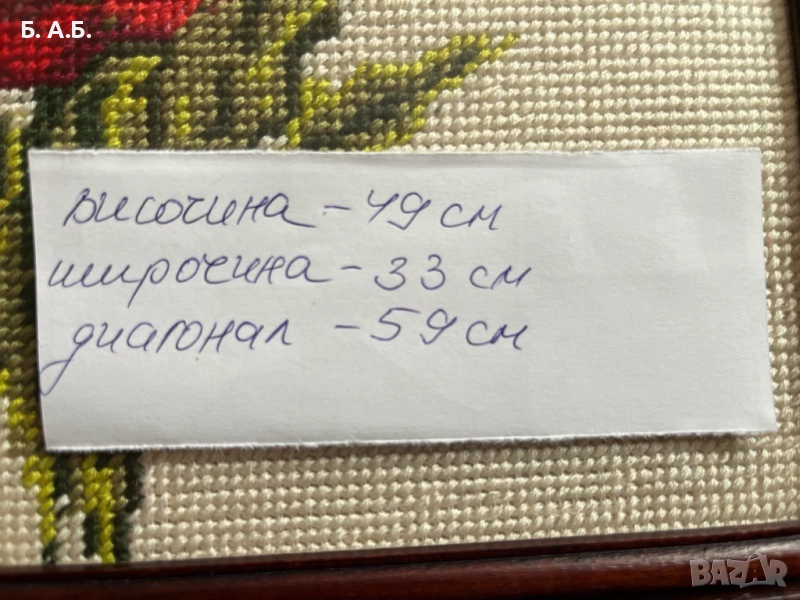 Б. А.Б.
височина - 49 см
широчина - 33 см
диагонал - 59 см
BAZAR